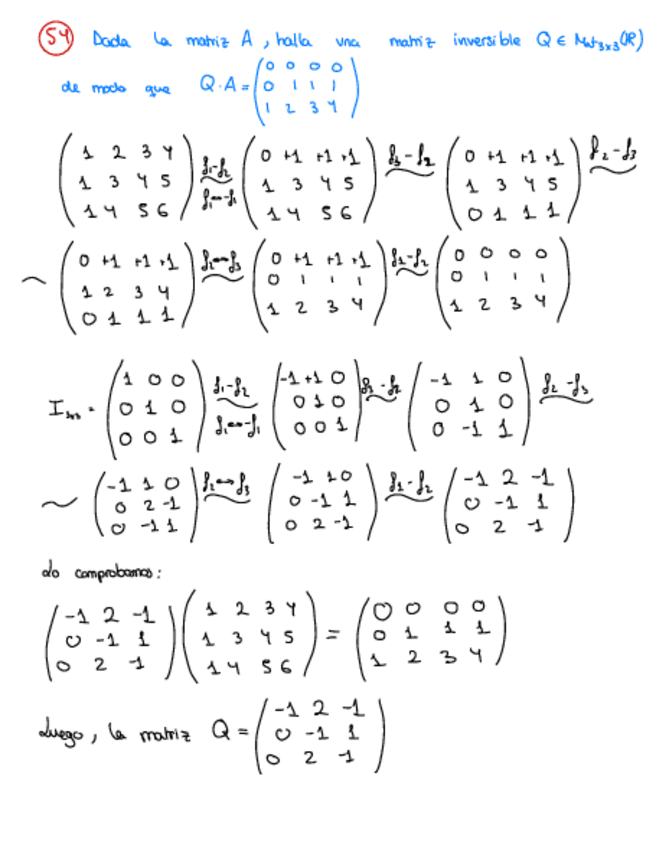 54 Dada la matriz A, halla una matriz inversible Q ∈ Mat₃ₓ₃(ℝ)
de modo que Q·A = (0 0 0 0; 0 1 1 1; 1 2 3 4)
(1 2 3 4; 1 3 4 5; 1 4 5 6) f₁-f₂ f₁↔-f₁ (0 +1 +1 +1; 1 3 4 5; 1 4 5 6) f₃-f₂ (0 +1 +1 +1; 1 3 4 5; 0 1 1 1) f₂-f₃
~ (0 +1 +1 +1; 1 2 3 4; 0 1 1 1) f₂↔f₃ (0 +1 +1 +1; 0 1 1 1; 1 2 3 4) f₁-f₂ (0 0 0 0; 0 1 1 1; 1 2 3 4)
I₃ₓ₃ = (1 0 0; 0 1 0; 0 0 1) f₁-f₂ f₁↔-f₁ (-1 +1 0; 0 1 0; 0 0 1) f₃-f₂ (-1 1 0; 0 1 0; 0 -1 1) f₂-f₃
~ (-1 1 0; 0 2 -1; 0 -1 1) f₂↔f₃ (-1 1 0; 0 -1 1; 0 2 -1) f₁-f₂ (-1 2 -1; 0 -1 1; 0 2 -1)
Lo comprobamos:
(-1 2 -1; 0 -1 1; 0 2 -1) (1 2 3 4; 1 3 4 5; 1 4 5 6) = (0 0 0 0; 0 1 1 1; 1 2 3 4)
Luego, la matriz Q = (-1 2 -1; 0 -1 1; 0 2 -1)